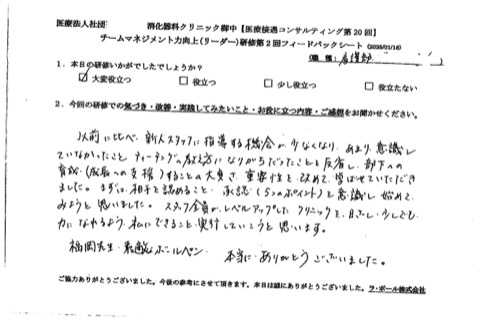 医療法人社団 消化器科クリニック御中【医療接遇コンサルティング第20回】
チームマネジメント力向上(リーダー)研修第2回フィードバックシート (2025/01/16)
(職種: 看護師 )
1.本日の研修いかがでしたでしょうか?
☑大変役立つ □役立つ □少し役立つ □役立たない
2.今回の研修での気づき・改善・実践してみたいこと・お役に立つ内容・ご感想をお聞かせください。
以前に比べ、新人スタッフに指導する機会が少なくなり、あまり意識し
ていなかったこと、ティーチングの教え方になりがちだったことを反省し、部下への
育成・(成長への支援)することの大切さ、重要性を改めて学ばせていただき
ました。まずは相手を認めること、承認(5つのポイント)を意識し始めて
みようと思いました。スタッフ全員がレベルアップしたクリニックを目ざし、少しでも
力になれるよう、私にできること、実行していこうと思います。
福岡先生・素敵なボールペン・本当に、ありがとうございました。
ご協力ありがとうございました。今後の参考にさせて頂きます。本日は誠にありがとうございました。ラ・ポール株式会社